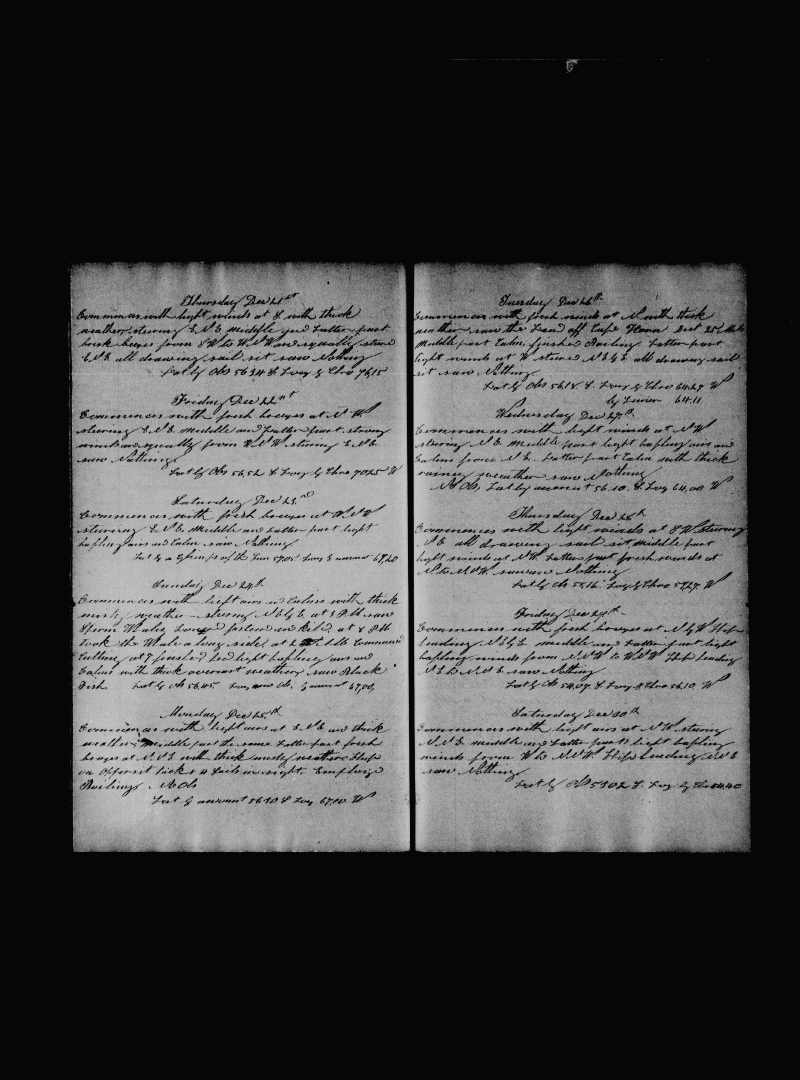 Thursday Dec 21st
Commences with light winds at S. with thick
weather stering E.N.E. Middle and Latter part
brisk breezes from S W to W.S.W. and squally stered
E.N.E. all drawing sail sit saw Nothing
Lat by Obs 56.34 S Long by Chro 76.15
Friday Dec 22nd
Commences with fresh breezes at N.W
stering E.N.E. Middle and Latter part strong
winds and squally from W.N.W stering E.N.E.
saw Nothing
Lat by Obs 56.52 S Long by Chro 70.25 W
Saturday Dec 23rd
Commences with fresh breezes at W.N.W
stering E.N.E. Middle and Latter part light
bafling airs and Calm saw Nothing
Lat by a Glimps of the Sun 57.05 Long by account 67.20
Sunday Dec 24th
Commences with light airs and Calms with thick
misty weather stering N.E by E. at 3 P.M. saw
Sperm Whales Lowerd fastened and killd at 8 P.M.
took the Whale a long side at 2 A.M. Commenced
Cutting at 7 finished and light bafling airs and
Calms with thick overcast weather saw Black
Fish Lat by Obs 56.45 Long no Obs. by account 67.00
Monday Dec 25th
Commences with light airs at E.N.E. and thick
weather Middle part the same Latter part fresh
breezes at N.N.E. with thick misty weather Ship
on oppersit tacks 4 Sails in sight. Employd
Boiling No Obs
Lat by account 56.40 S Long 67.10 W
Tuesday Dec 26th
Commences with fresh winds at N. with thick
weather saw the Land off Cape Horn
Middle part Calm, finished Boiling Latter part
light winds at W stered N.E by E. all drawing sail
sit saw Nothing
Lat by Obs 56.18 S. Long by Chro 64.27 W
by Luner 64.11
Wednesday Dec 27th
Commences with light winds at N.W
stering N.E. Middle part light bafling airs and
Calms from N.E. Latter part Calm with thick
rainy weather saw Nothing
No Obs, Lat by account 56.10. S. Long 64.00 W
Thursday Dec 28th
Commences with light winds at S W stering
N.E. all drawing sail sit Middle part
light winds at N.W. Latter part fresh winds at
N. to N.N.W. saw Nothing
Lat by Obs 55.16. Long by Chro 57.27. W
Friday Dec 29th
Commences with fresh breezes at N by W Ship
heading N.E by E middle and Latter part light
bafling winds from N.N.W to W.N.W Ship heading
N.E. to N.N.E. saw Nothing
Lat by Obs 54.07 S Long by Chro 56.10. W
Saturday Dec 30th
Commences with light airs at N.W. stering
N.N.E. middle and Latter parts light bafling
winds from W to N.N.W Ship heading N.E
saw Nothing
Lat by Obs 53.02 S. Long by Chro 54.40